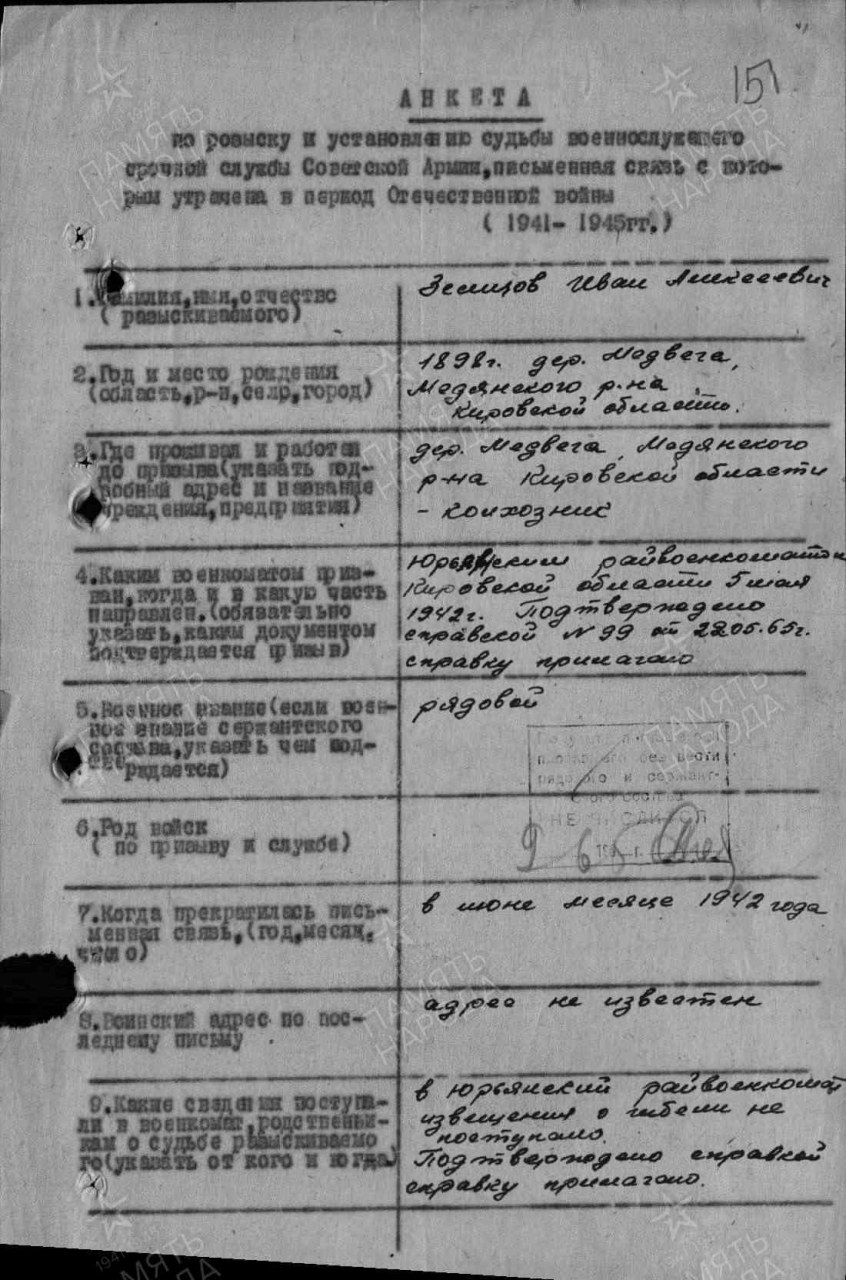 151
АНКЕТА
по розыску и установлению судьбы военнослужащего
срочной службы Советской Армии, письменная связь с кото-
рым утрачена в период Отечественной войны
( 1941- 1945гг.)
1. Фамилия, имя, отчество
( разыскиваемого)
Земцов Иван Алексеевич
2. Год и место рождения
(область, р-н, село, город)
1898г. дер. Медвега,
Медянского р-на
Кировской области.
3. Где проживал и работал
до призыва (указать под-
робный адрес и название
учреждения, предприятия)
дер. Медвега, Медянского
р-на Кировской области
- колхозник
4. Каким военкоматом приз-
ван, когда и в какую часть
направлен. (обязательно
указать, каким документом
подтверждается призыв)
Юрьянским райвоенкоматом
Кировской области 5 мая
1942г. Подтверждено
справкой №99 от 22.05.65г.
справку прилагаю
5. Военное звание (если воен-
ное звание сержантского
состава, указать чем под-
тверждается)
рядовой
пропавшего без вести
рядового и сержант-
ского состава
НЕ ЧИСЛИТСЯ
9 6 1965 г.
6. Род войск
( по призыву и службе)
7. Когда прекратилась пись-
менная связь, (год, месяц,
число)
в июне месяце 1942 года
8. Воинский адрес по пос-
леднему письму
адрес не известен
9. Какие сведения поступа-
ли в военкомат, родственни-
кам о судьбе разыскиваемо
го (указать от кого и когда)
в Юрьянский райвоенкомат
извещения о гибели не
поступало.
Подтверждено справкой
справку прилагаю.
ПАМЯТЬ
НАРОДА